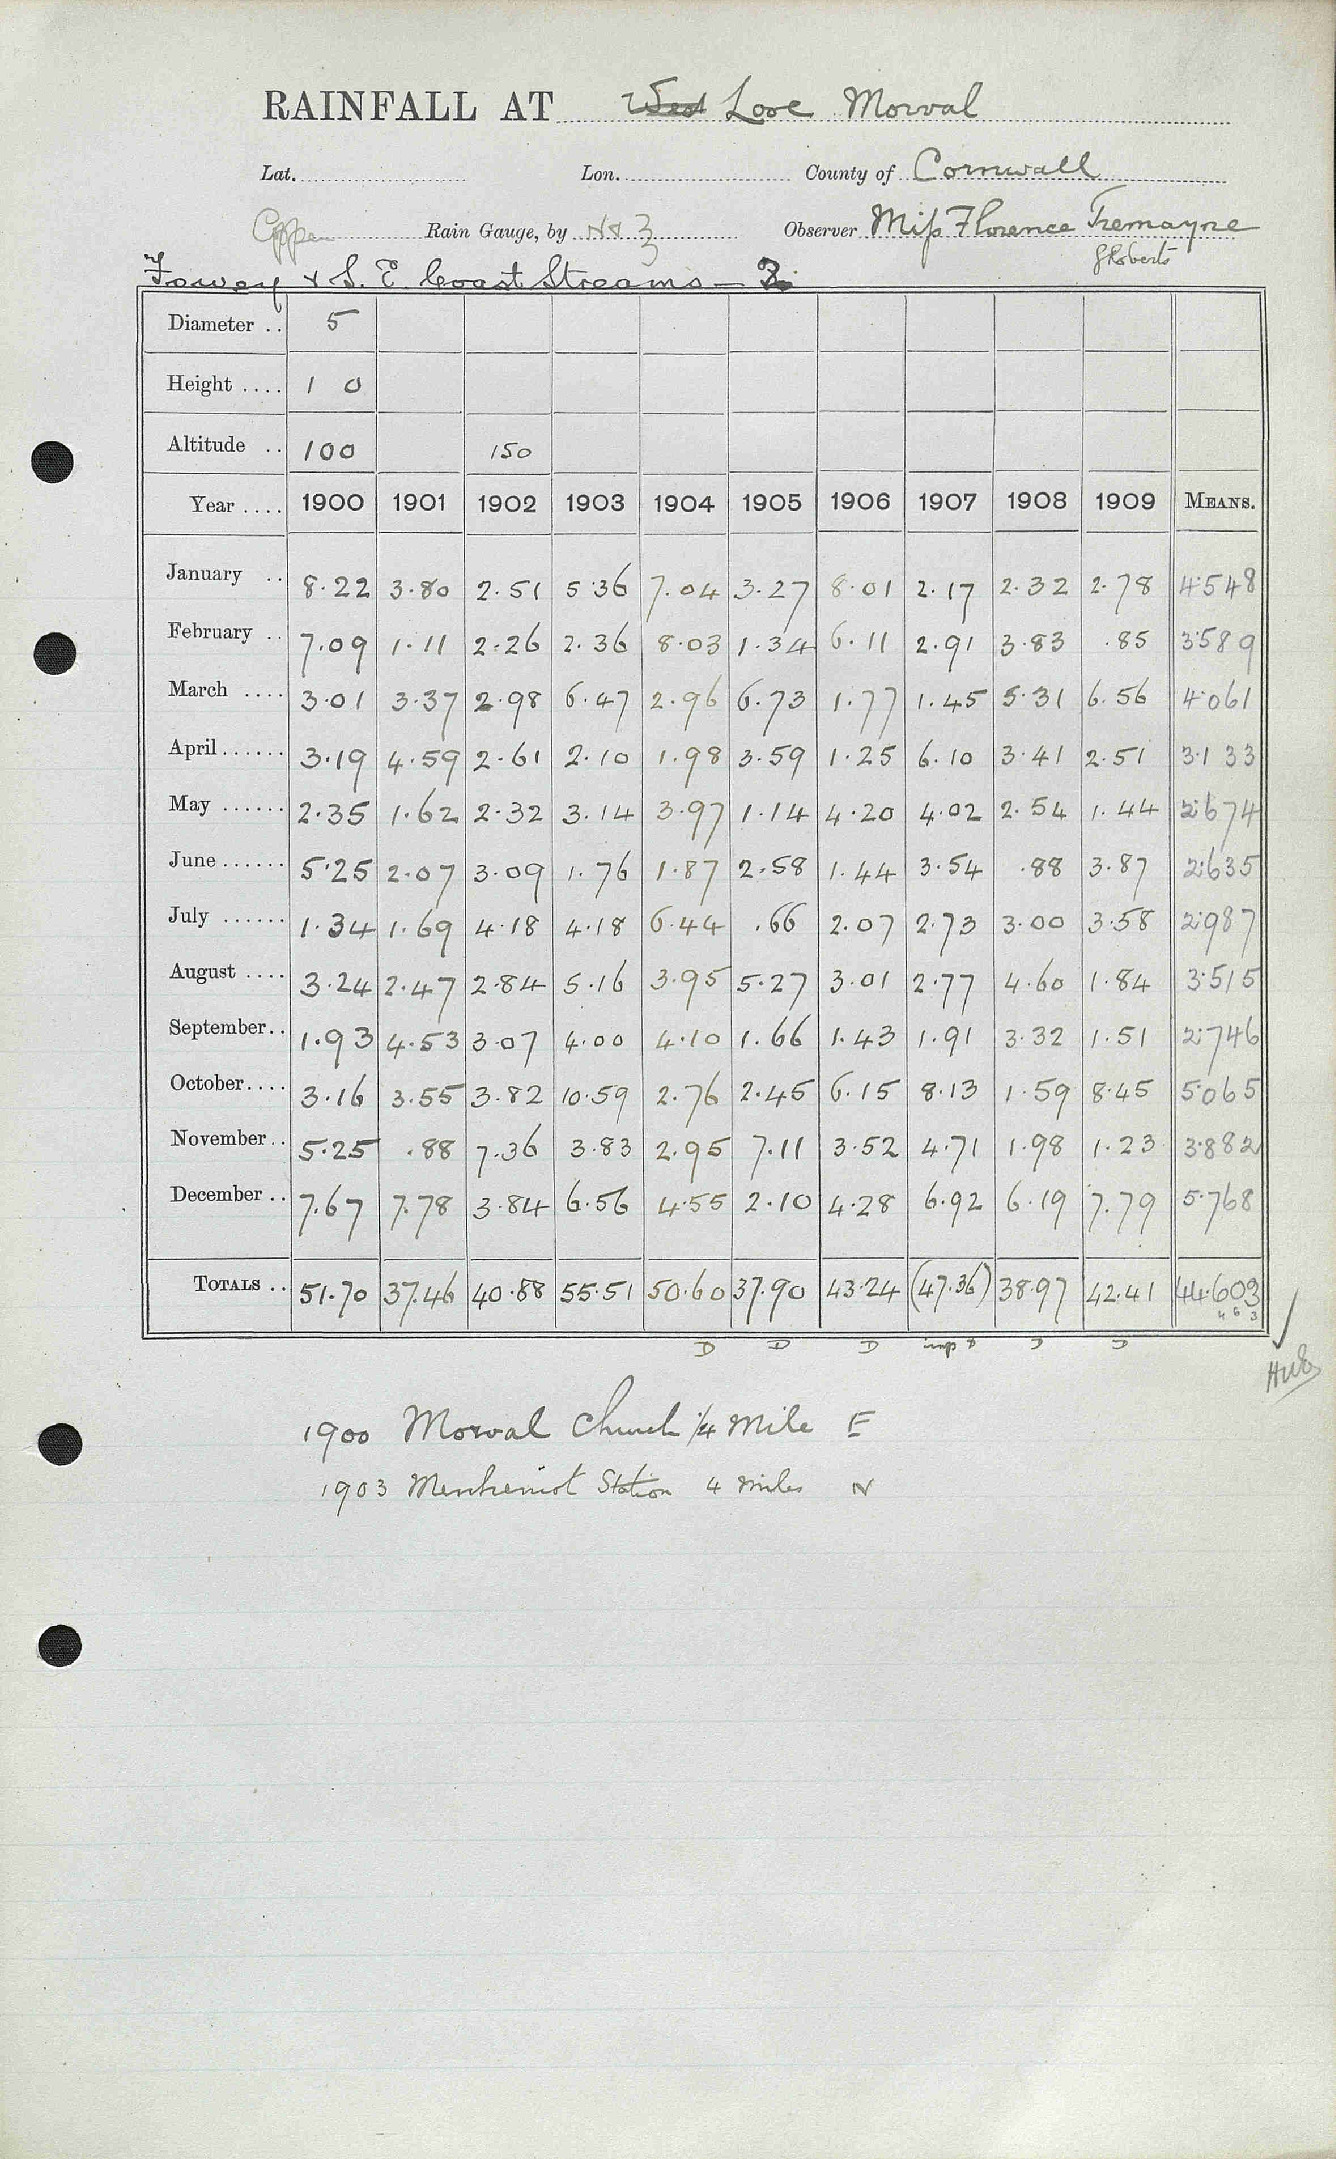 RAINFALL AT West Looe Morval
Lat. Lon. County of Cornwall
Copper Rain Gauge, by N & Z Observer Miss Florence Tremayne
J Roberts
Fowey & S. E. Coast Streams – 2
Diameter .. 5
Height .... 1 0
Altitude .. 100 150
Year .... 1900 1901 1902 1903 1904 1905 1906 1907 1908 1909 MEANS.
January .. 8.22 3.80 2.51 5.36 7.04 3.27 8.01 2.17 2.32 2.78 4.548
February .. 7.09 1.11 2.26 2.36 8.03 1.34 6.11 2.91 3.83 .85 3.589
March .... 3.01 3.37 2.98 6.47 2.96 6.73 1.77 1.45 5.31 6.56 4.061
April ...... 3.19 4.59 2.61 2.10 1.98 3.59 1.25 6.10 3.41 2.51 3.133
May ...... 2.35 1.62 2.32 3.14 3.97 1.14 4.20 4.02 2.54 1.44 2.674
June ...... 5.25 2.07 3.09 1.76 1.87 2.58 1.44 3.54 .88 3.87 2.635
July ...... 1.34 1.69 4.18 4.18 6.44 .66 2.07 2.73 3.00 3.58 2.987
August .... 3.24 2.47 2.84 5.16 3.95 5.27 3.01 2.77 4.60 1.84 3.515
September .. 1.93 4.53 3.07 4.00 4.10 1.66 1.43 1.91 3.32 1.51 2.746
October .... 3.16 3.55 3.82 10.59 2.76 2.45 6.15 8.13 1.59 8.45 5.065
November .. 5.25 .88 7.36 3.83 2.95 7.11 3.52 4.71 1.98 1.23 3.882
December .. 7.67 7.78 3.84 6.56 4.55 2.10 4.28 6.92 6.19 7.79 5.768
TOTALS .. 51.70 37.46 40.88 55.51 50.60 37.90 43.24 (47.36) 38.97 42.41 44.603
4 6 3
D D D imp D D D
1900 Morval Church 1/4 Mile E
1903 Menheniot Station 4 miles N